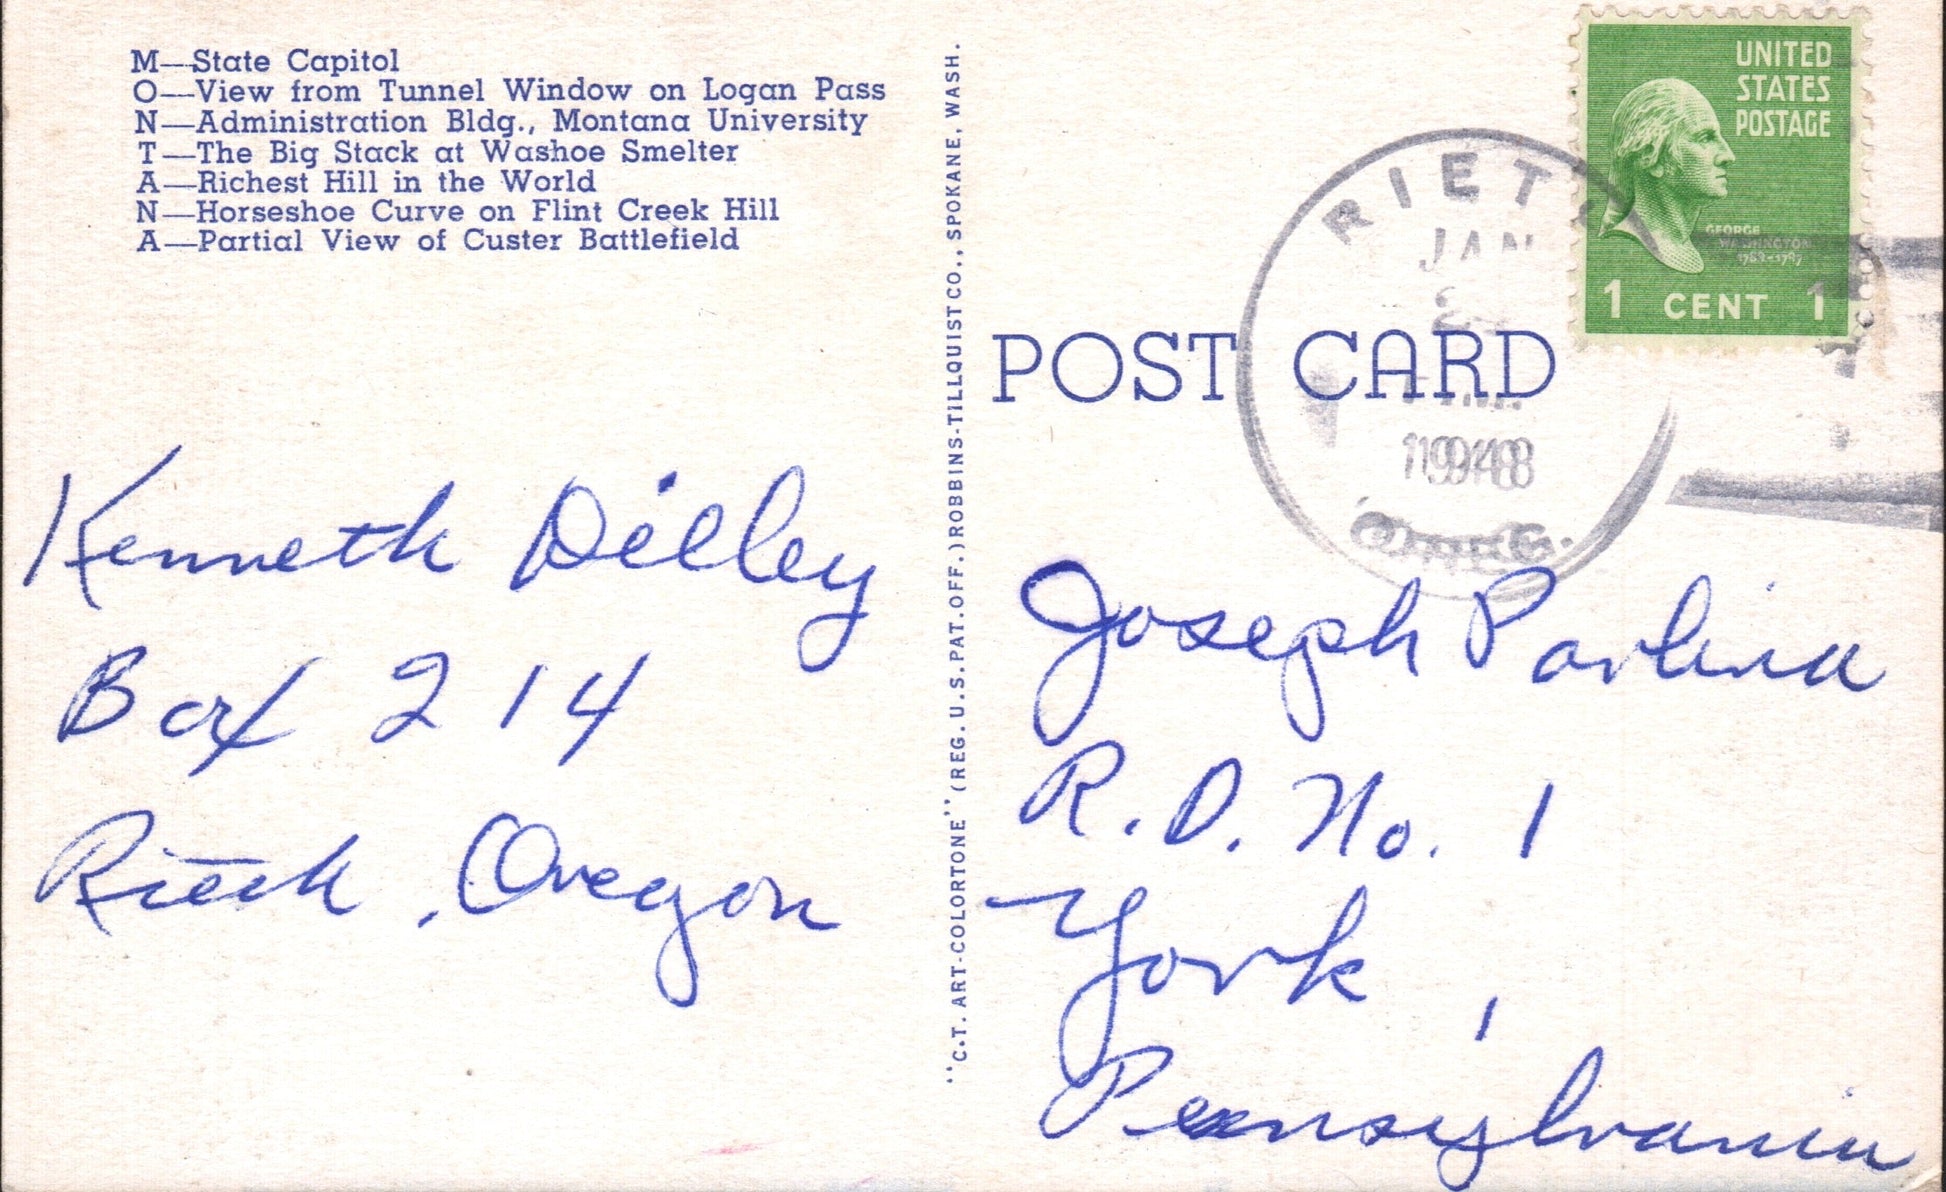 M—State Capitol
O—View from Tunnel Window on Logan Pass
N—Administration Bldg., Montana University
T—The Big Stack at Washoe Smelter
A—Richest Hill in the World
N—Horseshoe Curve on Flint Creek Hill
A—Partial View of Custer Battlefield
Kenneth Dilley
Box 214
Rieth, Oregon
"C.T. ART-COLORTONE" (REG. U.S. PAT. OFF.) ROBBINS-TILLQUIST CO., SPOKANE, WASH.
POST CARD
UNITED
STATES
POSTAGE
GEORGE
WASHINGTON
1789-1797
1 CENT 1
RIETH
JAN
1948
OREG.
Joseph Pavlina
R.D. No. 1
York,
Pennsylvania